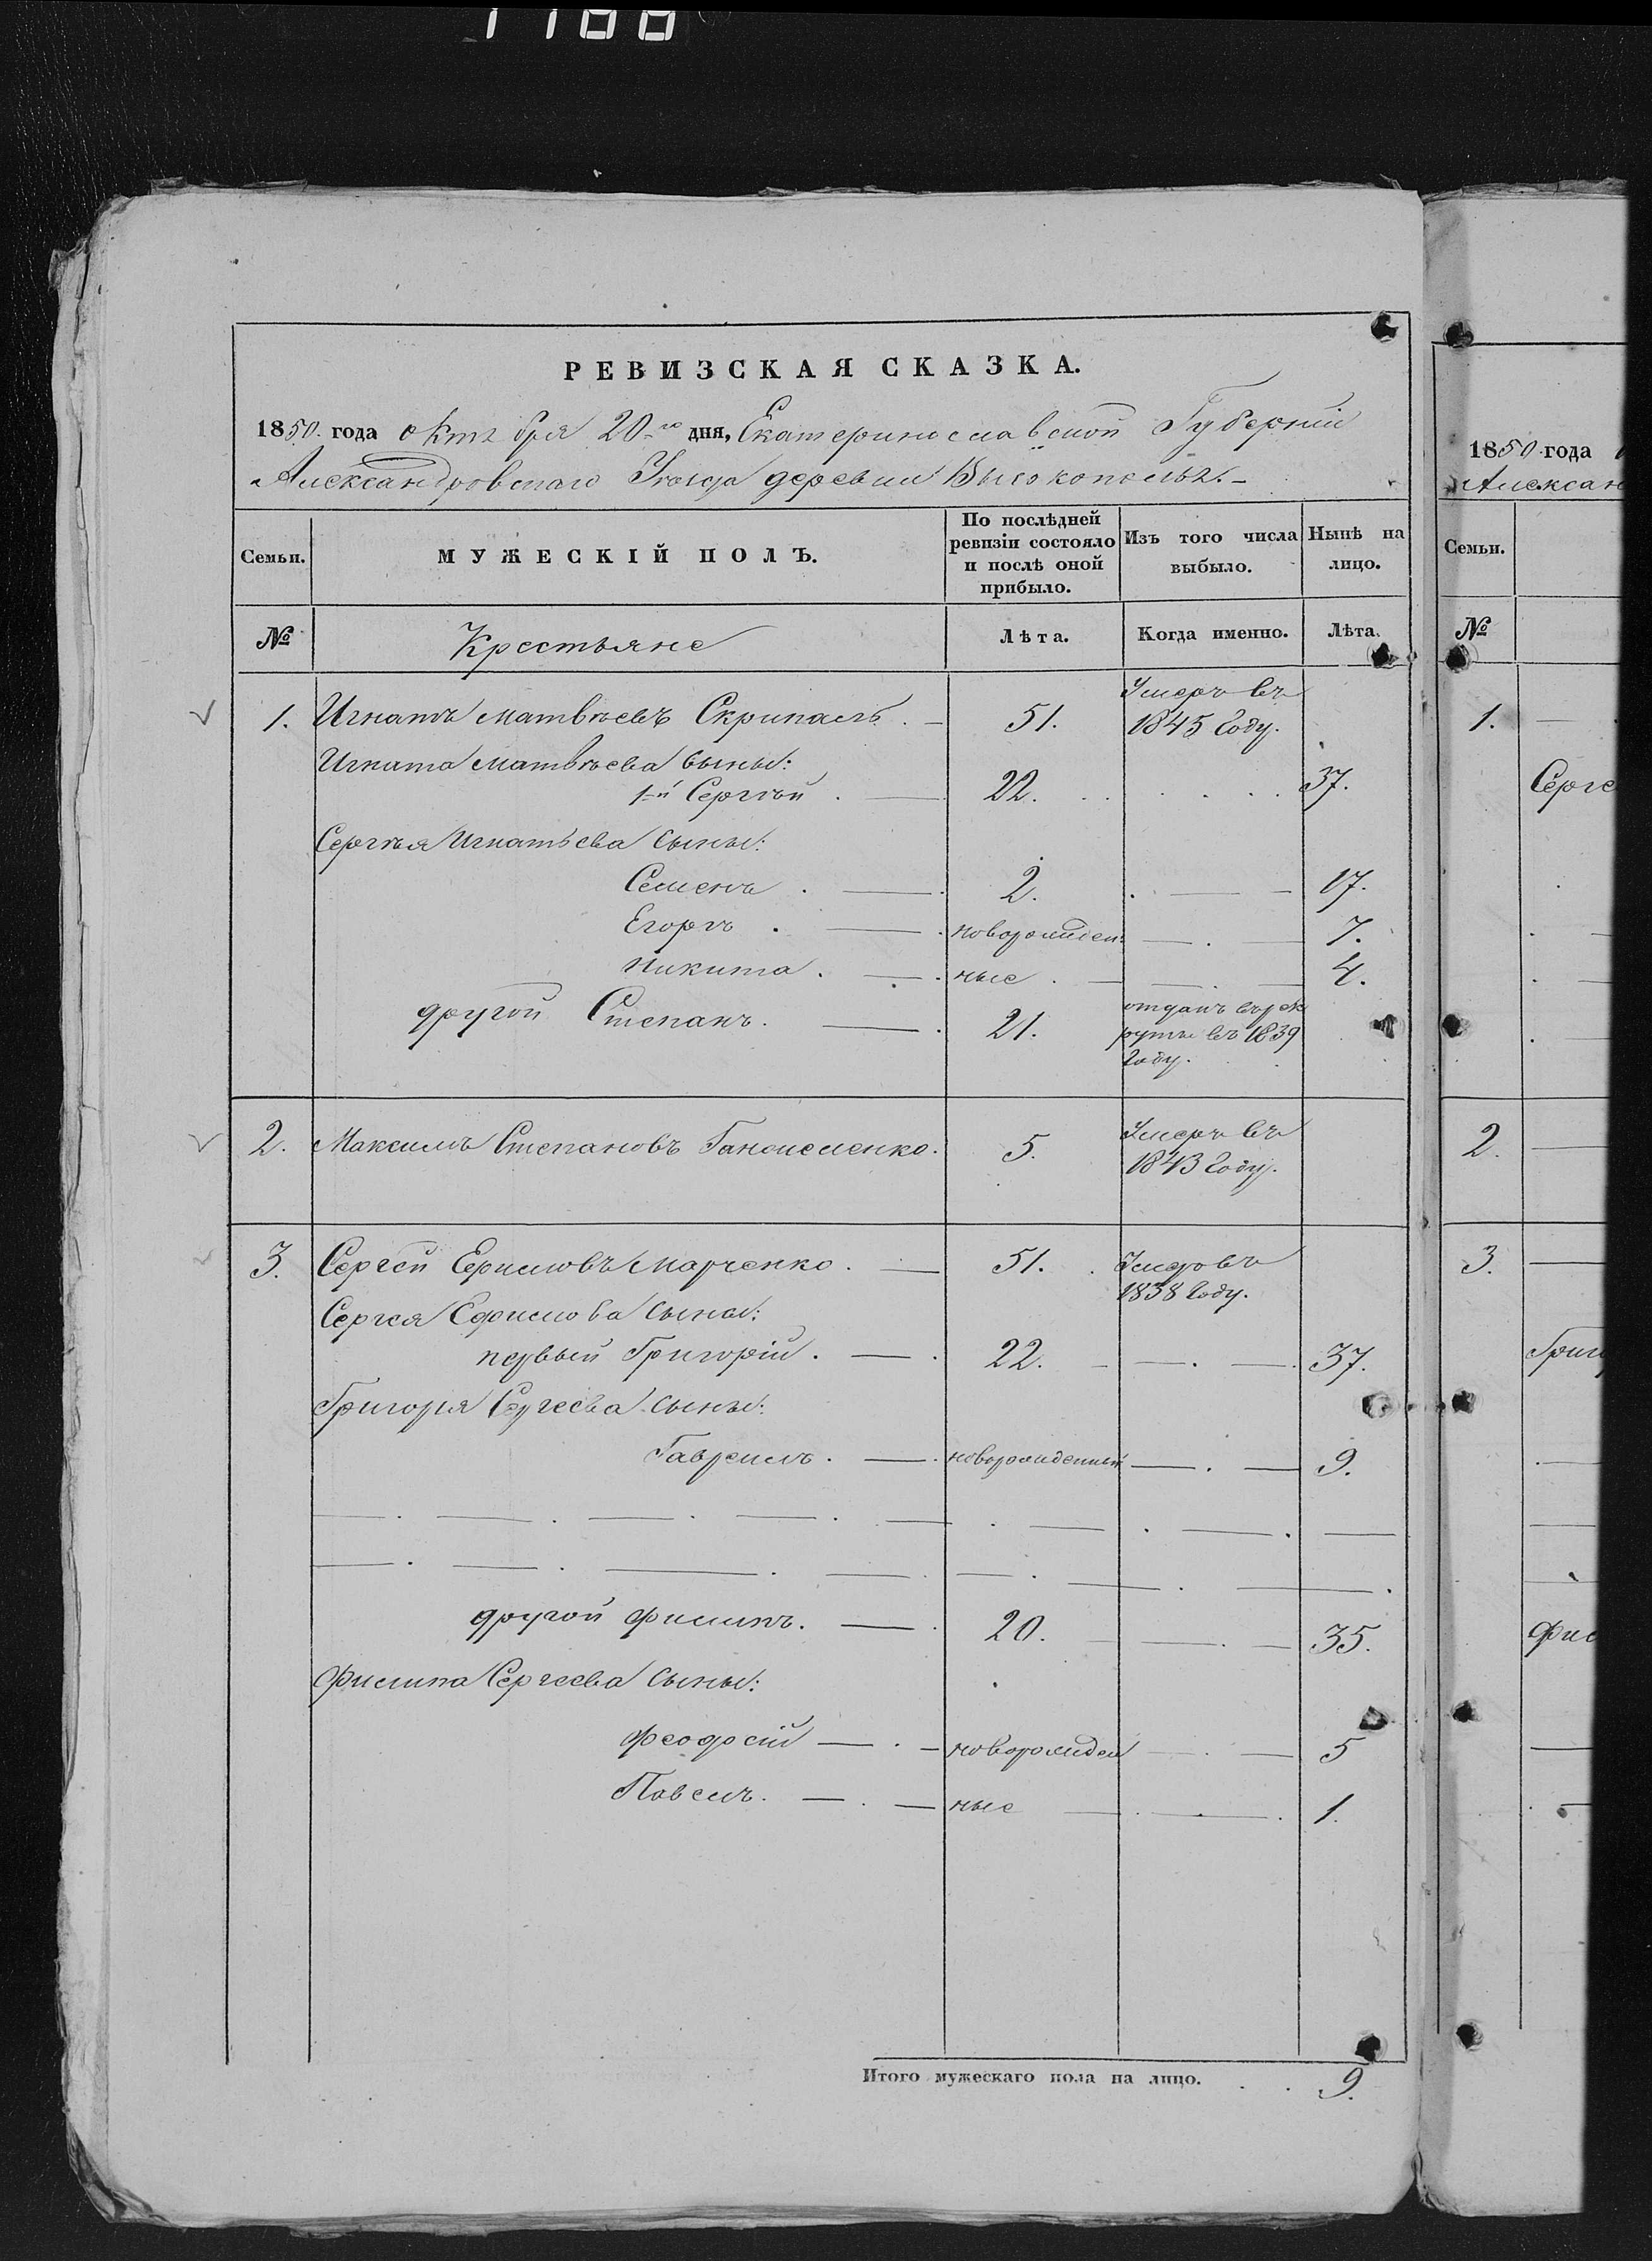 РЕВИЗСКАЯ СКАЗКА.
1850 года октября 20-го дня, Екатеринославской Губернiи
Александровскаго Уѣзда деревни Высокополья.
Семьи.
МУЖЕСКІЙ ПОЛЪ.
По послѣдней ревизіи состояло и послѣ оной прибыло.
Изъ того числа выбыло.
Нынѣ на лицо.
№ Крестьяне Лѣта. Когда именно. Лѣта.
1. Игнатъ Матвѣевъ Скрипаль. 51. Умеръ въ 1845 году.
Игната Матвѣева сыны:
1-й Сергѣй 22. 37.
Сергѣя Игнатьева сыны:
Семенъ 2. 17.
Егоръ новорожден: 7.
Никита ные 4.
другой Степанъ. 21. отданъ въ рек
руты въ 1839
году.
2. Максимъ Степановъ 5. Умеръ въ 1843 году.
3. Сергей Ефимовъ Марченко. 51. Умеръ въ 1838 году.
Сергея Ефимова сыны:
первый Григорій. 22. 37.
Григорья Сергеева сыны:
Гавреилъ. новорожденный 9.
другой Филипъ. 20. 35.
Филипа Сергеева сыны:
Феодосій новорожден 5
Павелъ. ные 1.
Итого мужескаго пола на лицо. 9.
1850 года
Алексан
Семьи.
№
1.
Серге
2.
3.
Григ
Фил